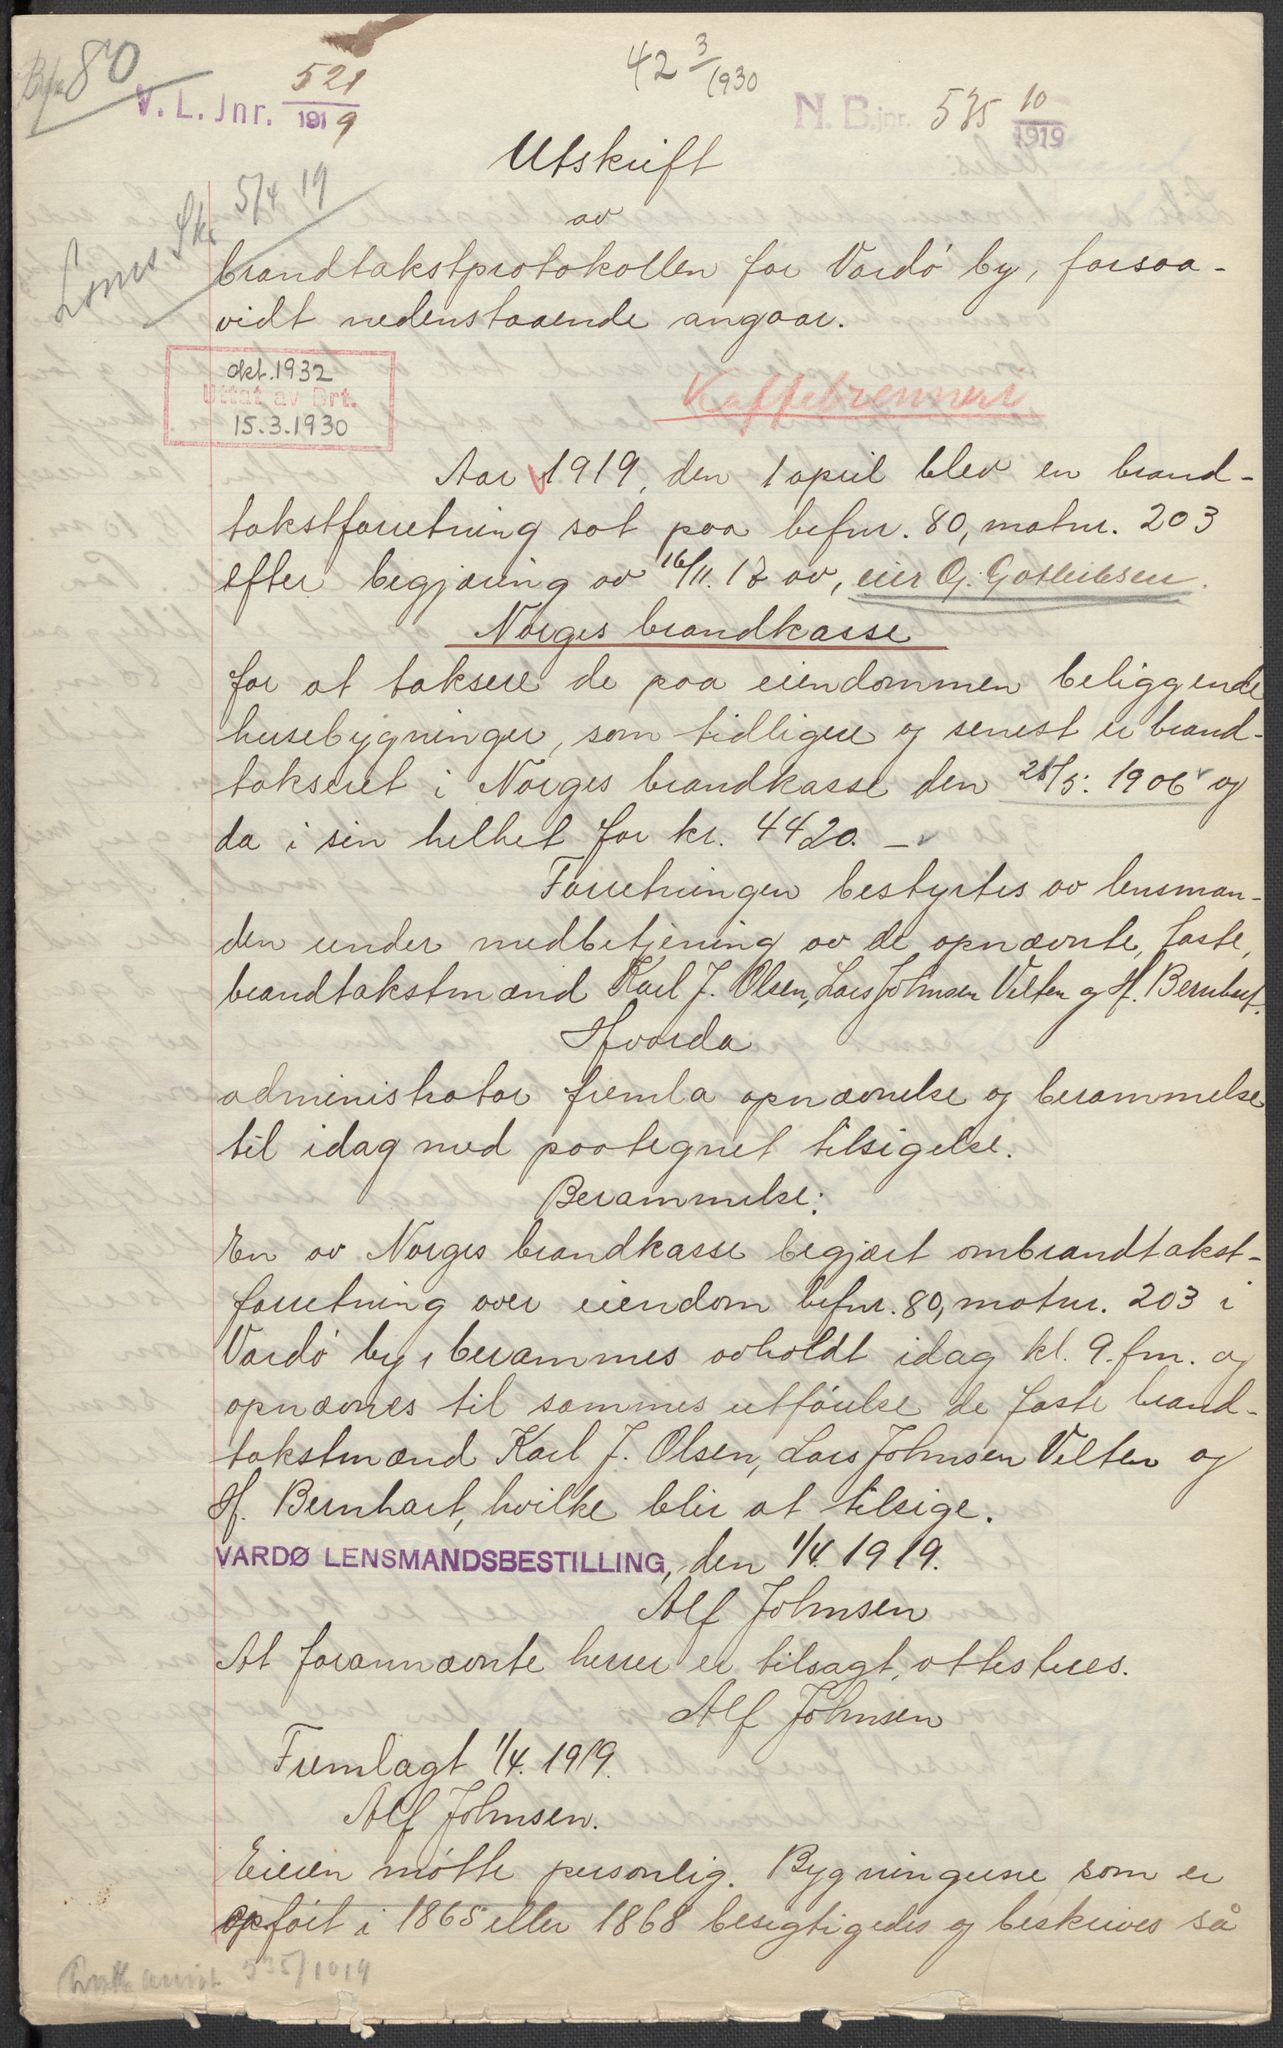 80
42 3/1930
V. L. Jnr. 521/1919
N. B. jnr. 535 10/1919
Utskrift
av
5/4 19
brandtakstprotokollen for Vardö by, forsaa-
vidt nedenstaaende angaar.
okt. 1932
Uttat av Drt.
15.3.1930
Kaffebrenneri
Aar 1919, den 1 april blev en brand-
takstforretning sat paa befnr. 80, matnr. 203
efter begjæring av 16/11. 18 av, eier O. Gotleibsen.
Norges brandkasse
for at taksere de paa eiendommen beliggende
husebygninger, som tidligere og senest er brand-
takseret i Norges brandkasse den 28/5. 1906 og
da i sin helhet for kr. 4420. —
Forretningen bestyrtes av lensman-
den under medbetjening av de opnævnte, faste,
brandtakstmænd Karl J. Olsen, Lars Johnsen Velten og H. Bernhart.
Hvorda
administrator fremla opnævnelse og berammelse
til idag med paategnet tilsigelse.
Berammelse:
En av Norges brandkasse begjært ombrandtakst-
forretning over eiendom befnr. 80, matnr. 203 i
Vardö by, berammes avholdt idag kl. 9. fm. og
opnævnes til sammes utförelse de faste brand-
takstmænd Karl J. Olsen, Lars Johnsen Velten og
H. Bernhart, hvilke blir at tilsige.
VARDØ LENSMANDSBESTILLING, den 1/4. 1919.
Alf Johnsen
At forannævnte herrer er tilsagt, attesteres.
Alf Johnsen
Fremlagt 1/4. 1919.
Alf Johnsen.
Eieren mötte personlig. Bygningerne som er
opfört i 1865 eller 1868 besigtigedes og beskrives så
535/1919